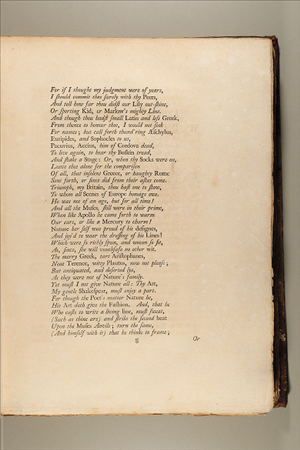 For if I thought my judgment were of years,
I should commit thee surely with thy Peers,
And tell how far thou didst our Lily out-shine,
Or sporting Kid, or Marlow's mighty Line.
And though thou hadst small Latin and less Greek,
From thence to honour thee, I would not seek
For names; but call forth thund'ring Æschylus,
Euripides, and Sophocles to us,
Pacuvius, Accius, him of Cordova dead,
To live again, to hear thy Buskin tread,
And shake a Stage: Or, when thy Socks were on,
Leave thee alone for the comparison
Of all, that insolent Greece, or haughty Rome
Sent forth, or since did from their ashes come.
Triumph, my Britain, thou hast one to show,
To whom all Scenes of Europe homage owe.
He was not of an age, but for all time!
And all the Muses, still were in their prime,
When like Apollo he came forth to warm
Our ears, or like a Mercury to charm!
Nature her self was proud of his designes,
And joy'd to wear the dressing of his Lines!
Which were so richly spun, and woven so fit,
As, since, she will vouchsafe no other wit.
The merry Greek, tart Aristophanes,
Neat Terence, witty Plautus, now not please;
But antiquated, and deserted lye,
As they were not of Nature's family.
Yet must I not give Nature all: Thy Art,
My gentle Shakespear, must enjoy a part.
For though the Poet's matter Nature be,
His Art doth give the Fashion. And, that he
Who casts to write a living line, must sweat,
(Such as thine are) and strike the second heat
Upon the Muses Anvile; turn the same,
(And himself with it) that he thinks to frame;
g Or